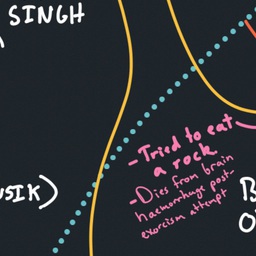 SINGH
-Tried to eat
a rock
-Dies from brain
haemorrhage post-
exorcism attempt
USIK)